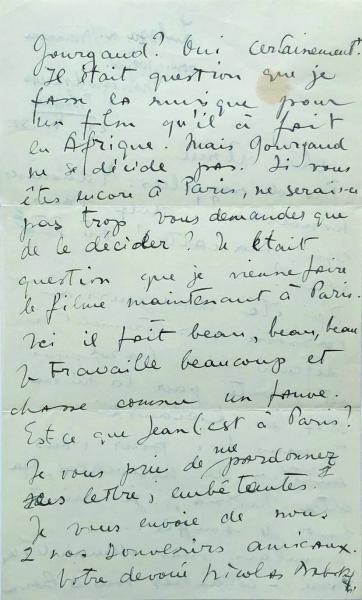 Gourgaud? Oui certainement.
Il était question que je
fasse la musique pour
un film qu'il à fait
en Afrique. Mais Gourgaud
ne se décide pas. Si vous
êtes encore à Paris, ne serais-ce
pas trop vous demander que
de le décider? Il était
question que je vienne faire
le filme maintenant à Paris.
Ici il fait beau, beau, beau
Je Travaille beaucoup et
chasse comme un fauve.
Est ce que Jean est à Paris?
Je vous prie de me pardonnez
mes lettres embêtantes.
Je vous envoie de nous
2 nos souvenirs amicaux.
Votre devoué Nicolas